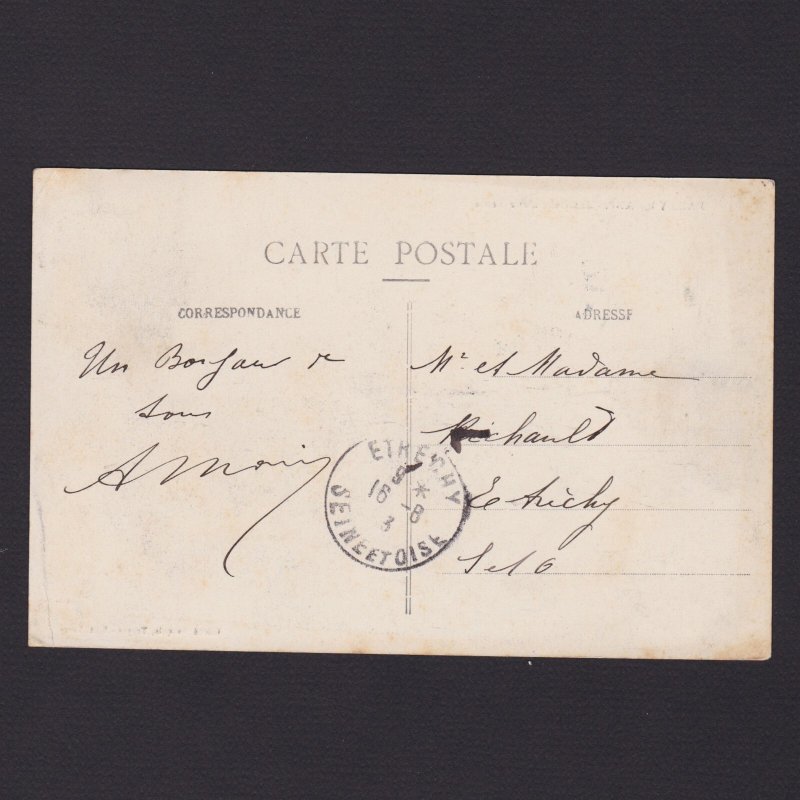 CARTE POSTALE
CORRESPONDANCE
ADRESSE
Un Bonjour de
tous
Mr et Madame
Richault
Etrichy
S et O
ETRECHY
16 - 8
3
SEINE ET OISE